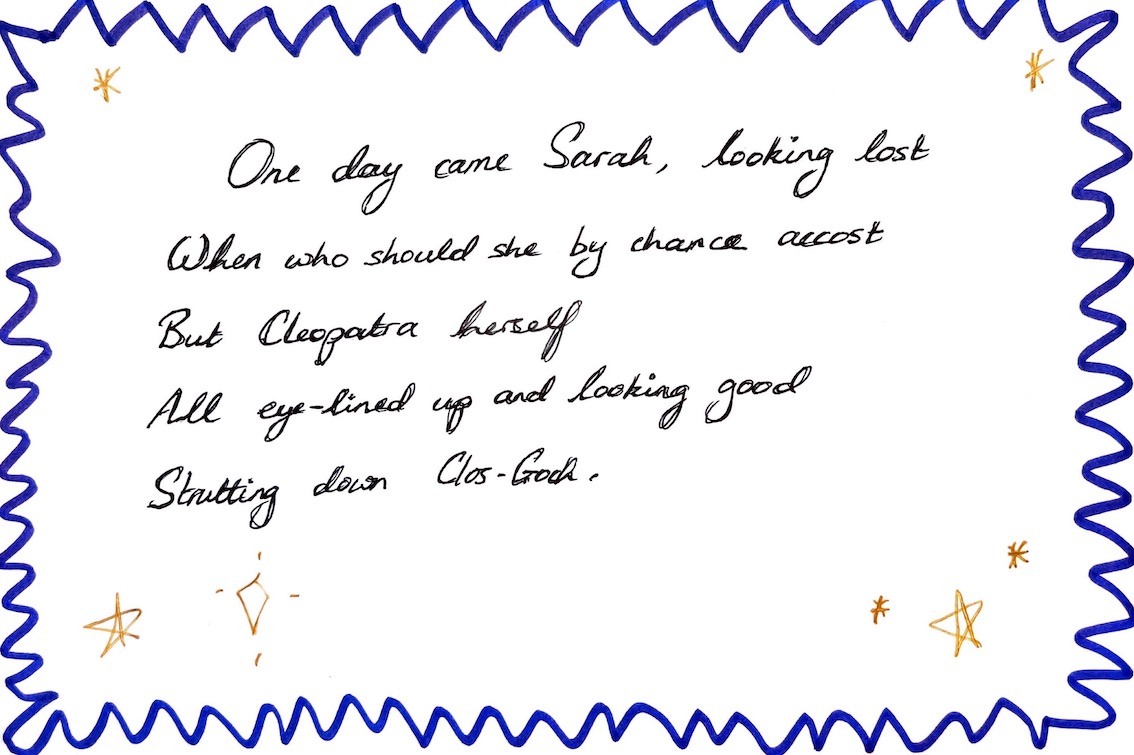 One day came Sarah, looking lost
When who should she by chance accost
But Cleopatra herself
All eye-lined up and looking good
Strutting down Clos-Goch.